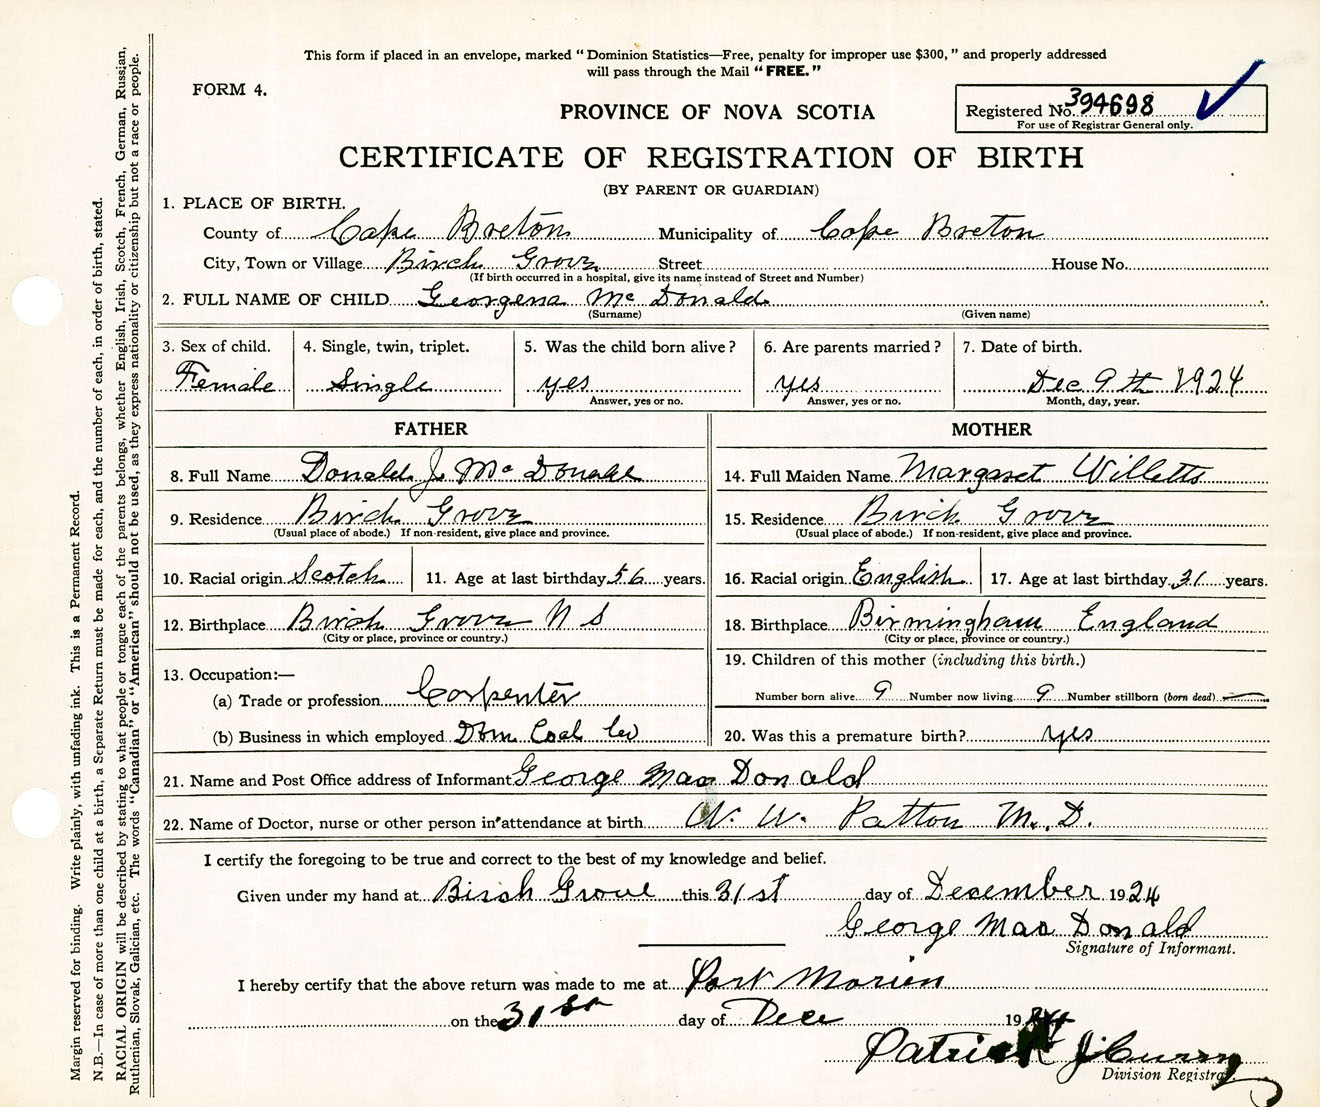 This form if placed in an envelope, marked "Dominion Statistics—Free, penalty for improper use $300," and properly addressed
will pass through the Mail "FREE."
FORM 4.
PROVINCE OF NOVA SCOTIA
Registered No. 394698
For use of Registrar General only.
CERTIFICATE OF REGISTRATION OF BIRTH
(BY PARENT OR GUARDIAN)
1. PLACE OF BIRTH.
County of Cape Breton Municipality of Cape Breton
City, Town or Village Birch Grove Street House No.
(If birth occurred in a hospital, give its name instead of Street and Number)
2. FULL NAME OF CHILD Georgena Mc Donald
(Surname) (Given name)
3. Sex of child. 4. Single, twin, triplet. 5. Was the child born alive? 6. Are parents married? 7. Date of birth.
Female Single yes yes Dec 9th 1924
Answer, yes or no. Answer, yes or no. Month, day, year.
FATHER MOTHER
8. Full Name Donald J Mc Donald 14. Full Maiden Name Margaret Willetts
9. Residence Birch Grove 15. Residence Birch Grove
(Usual place of abode.) If non-resident, give place and province. (Usual place of abode.) If non-resident, give place and province.
10. Racial origin Scotch 11. Age at last birthday 56 years. 16. Racial origin English 17. Age at last birthday 31 years.
12. Birthplace Birch Grove N S 18. Birthplace Birmingham England
(City or place, province or country.) (City or place, province or country.)
13. Occupation:— 19. Children of this mother (including this birth.)
(a) Trade or profession Carpenter Number born alive 9 Number now living 9 Number stillborn (born dead) —
(b) Business in which employed Dom. Coal 20. Was this a premature birth? yes
21. Name and Post Office address of Informant George Mac Donald
22. Name of Doctor, nurse or other person in attendance at birth W. W. Patton M. D.
I certify the foregoing to be true and correct to the best of my knowledge and belief.
Given under my hand at Birch Grove this 31st day of December 1924
George Mac Donald
Signature of Informant.
I hereby certify that the above return was made to me at Port Morien
on the 31st day of Dece 1924
Patrick J Curry
Division Registrar.
Margin reserved for binding. Write plainly, with unfading ink. This is a Permanent Record.
N.B.—In case of more than one child at a birth, a Separate Return must be made for each, and the number of each, in order of birth, stated.
RACIAL ORIGIN will be described by stating to what people or tongue each of the parents belongs, whether English, Irish, Scotch, French, German, Russian,
Ruthenian, Slovak, Galician, etc. The words "Canadian" or "American" should not be used, as they express nationality or citizenship but not a race or people.